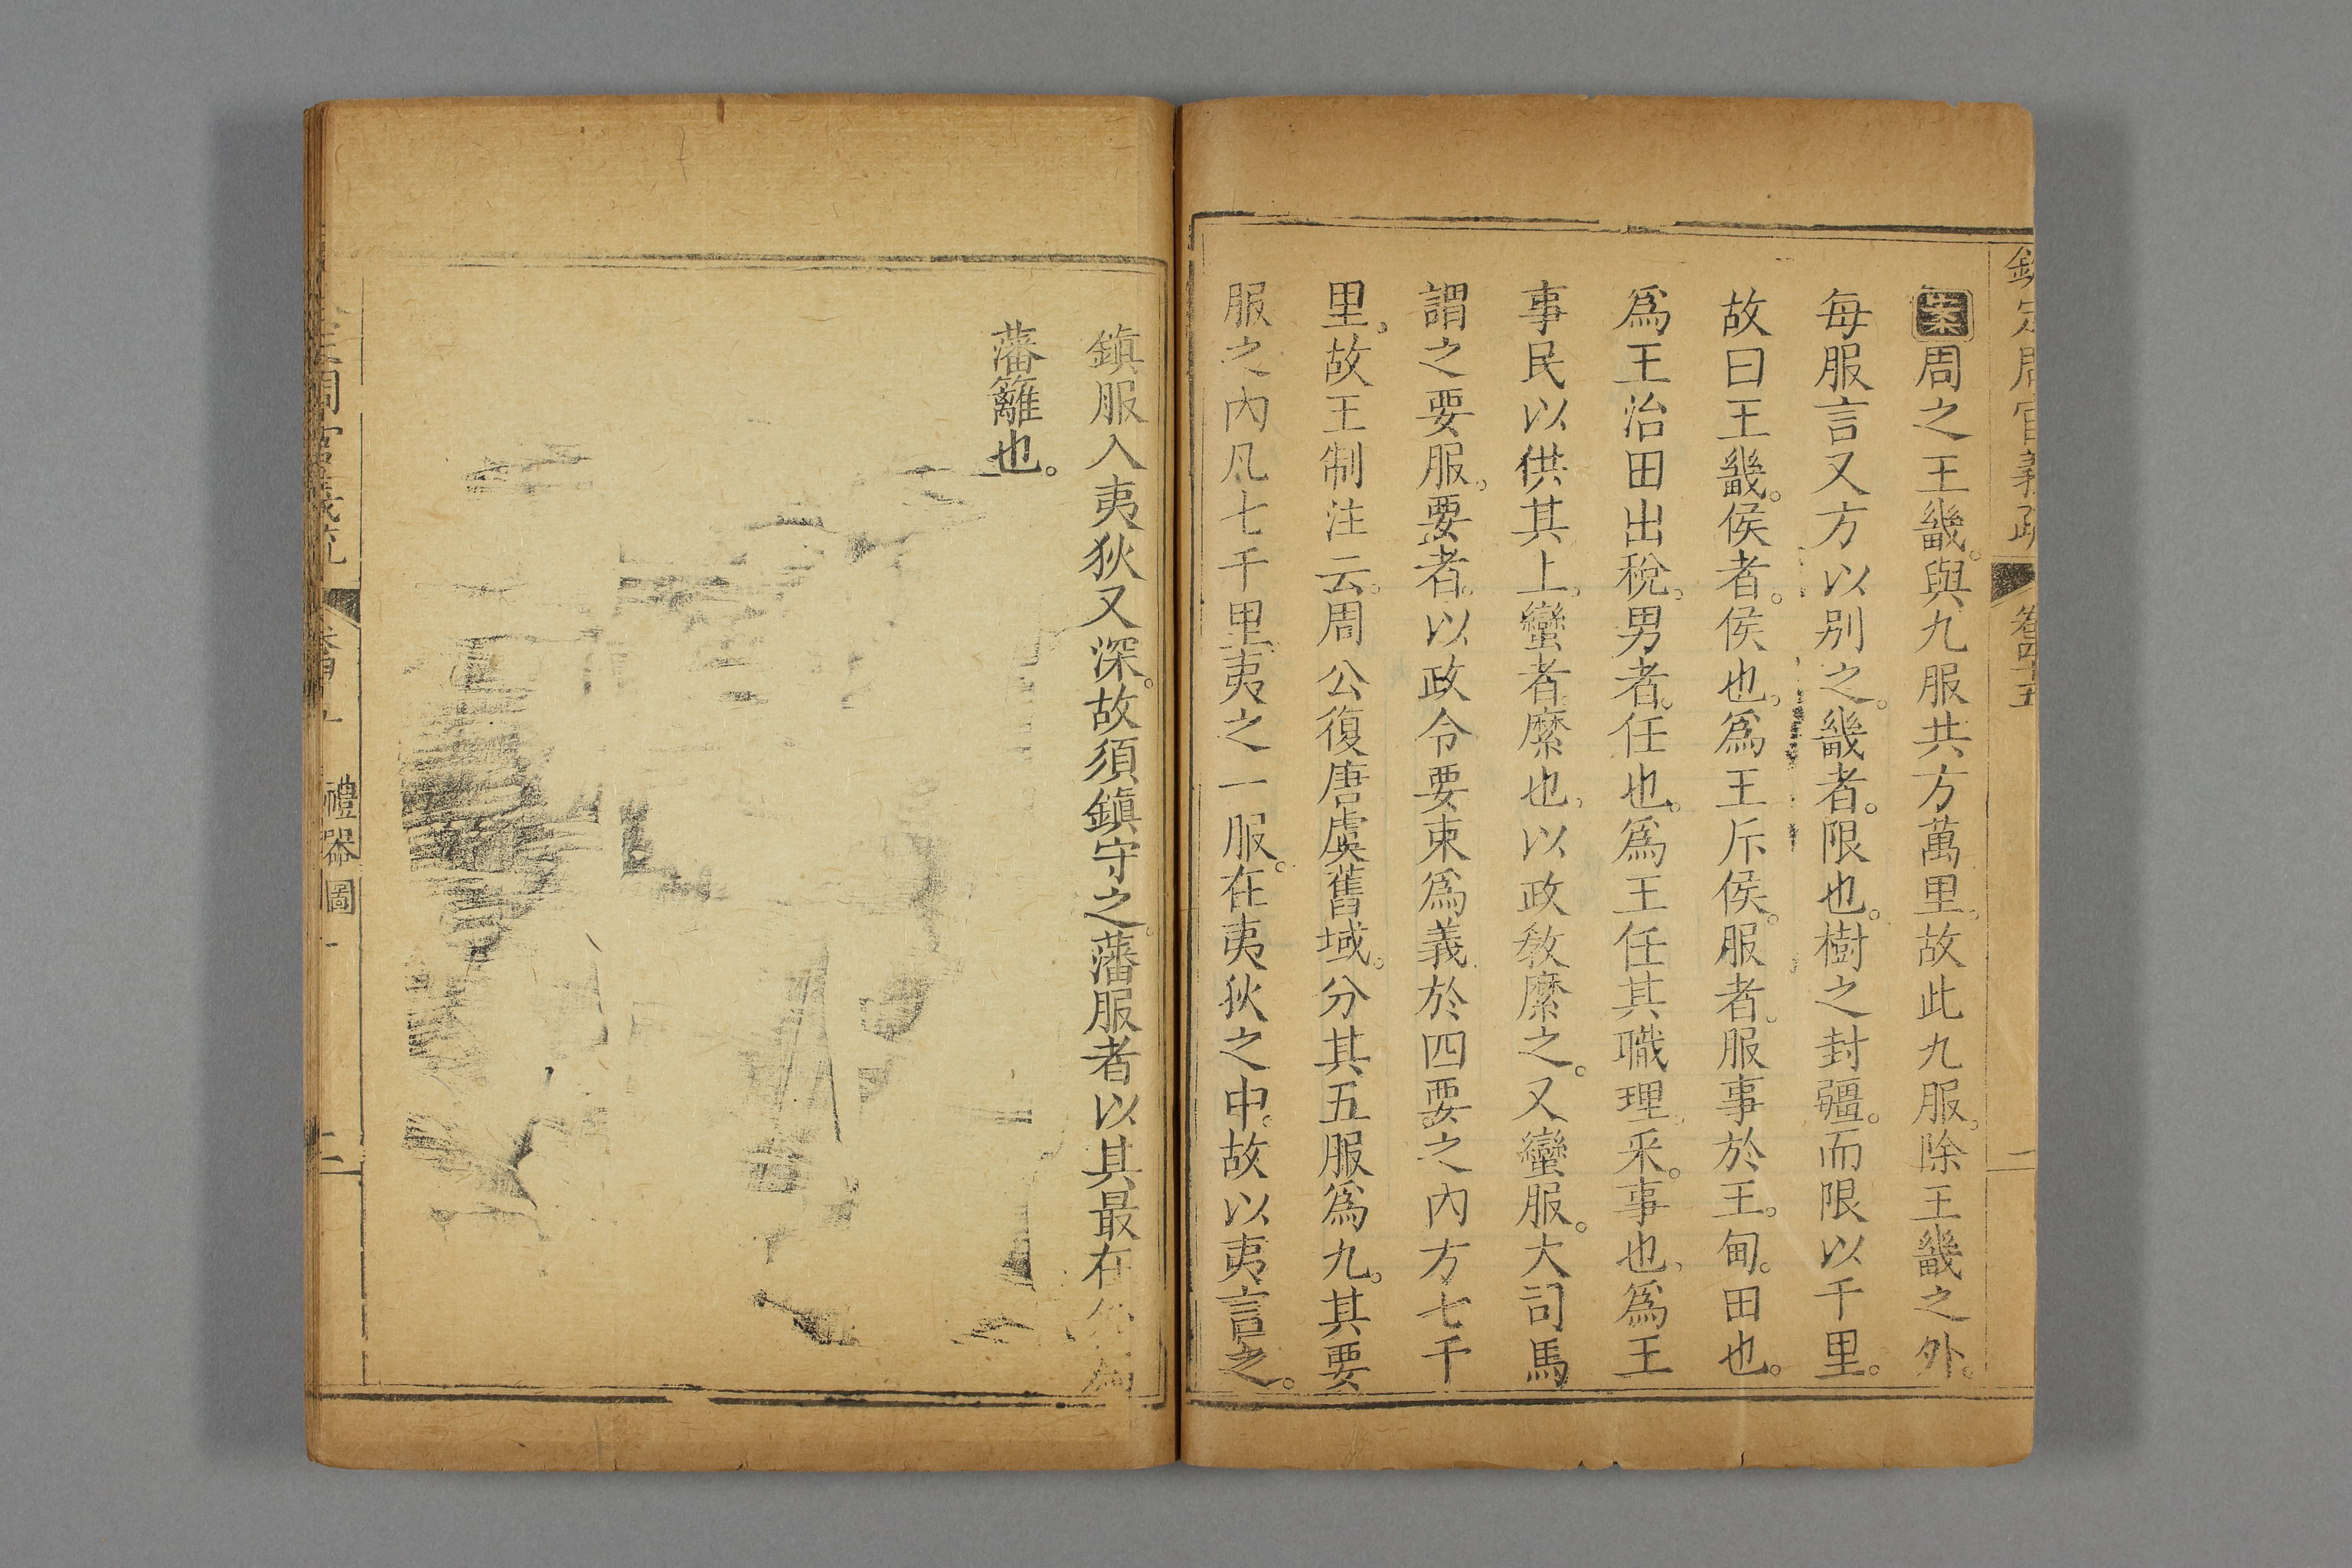 欽定周官義疏 卷四十五 二
案周之王畿。與九服共方萬里。故此九服。除王畿之外。
每服言又方以別之。畿者。限也。樹之封疆。而限以千里。
故曰王畿。侯者。侯也。爲王斥侯。服者。服事於王。甸。田也。
爲王治田出稅。男者。任也。爲王任其職理。采。事也。爲王
事民以供其上。蠻者。縻也。以政敎縻之。又蠻服。大司馬
謂之要服。要者。以政令要束爲義。於四要之內方七千
里。故王制注云。周公復唐虞舊域。分其五服爲九。其要
服之內凡七千里。夷之一服。在夷狄之中。故以夷言之。
鎭服入夷狄又深。故須鎭守之藩服者以其最在外爲
藩籬也。
周官義疏 禮器圖 二